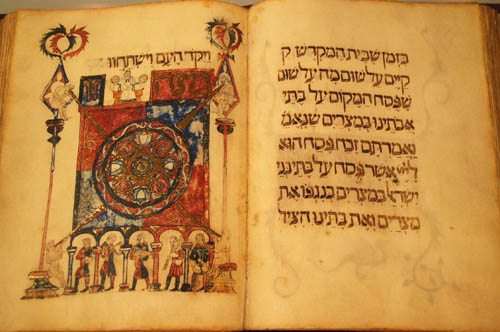 בזמן שבית המקדש ק
קיים על שום מה על שום
שפסח המקום על בתי
אבותינו במצרים שנאמ
ואמרתם זבח פסח הוא
ליי אשר פסח על בתי בני
ישראל במצרים בנגפו את
מצרים ואת בתינו הציל
ויקד העם וישתחוו